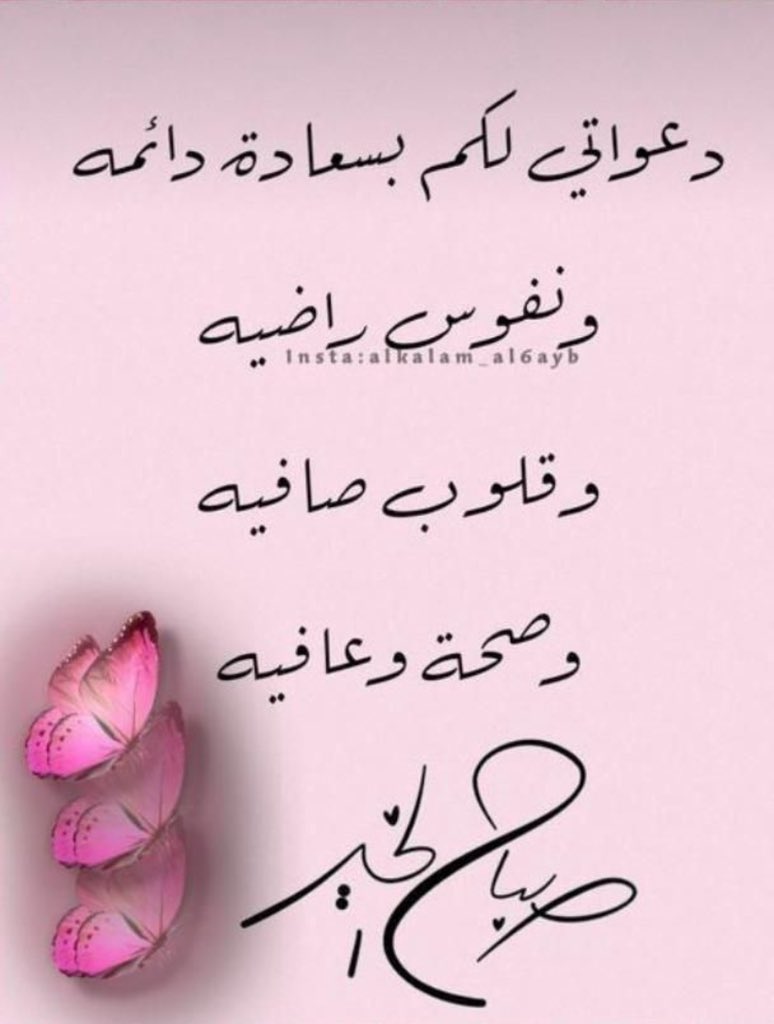 دعواتي لكم بسعادة دائمه
ونفوس راضيه
Insta:alkalam_al6ayb
وقلوب صافيه
وصحة وعافيه
صباح الخير